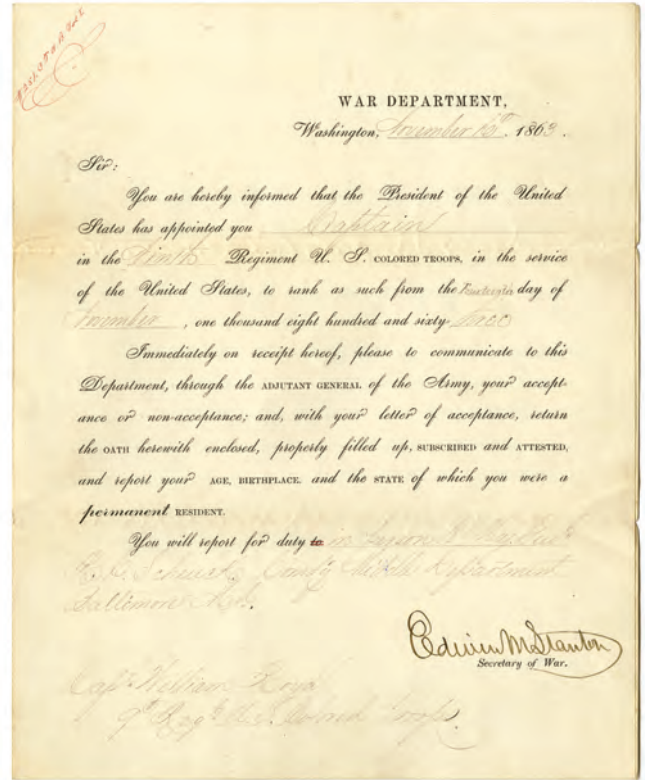 WAR DEPARTMENT,
Washington, November 13th, 1863.
Sir:
You are hereby informed that the President of the United
States has appointed you Captain
in the Ninth Regiment U. S. COLORED TROOPS, in the service
of the United States, to rank as such from the day of
November, one thousand eight hundred and sixty three
Immediately on receipt hereof, please to communicate to this
Department, through the ADJUTANT GENERAL of the Army, your accept-
ance or non-acceptance; and, with your letter of acceptance, return
the OATH herewith enclosed, properly filled up, SUBSCRIBED and ATTESTED,
and report your AGE, BIRTHPLACE, and the STATE of which you were a
permanent RESIDENT.
You will report for duty to in person to Maj. Genl.
R. C. Schenck, Comdg Middle Department
Baltimore Md.
Edwin M Stanton
Secretary of War.
Capt. William
9th Regt U.S. Colored Troops.